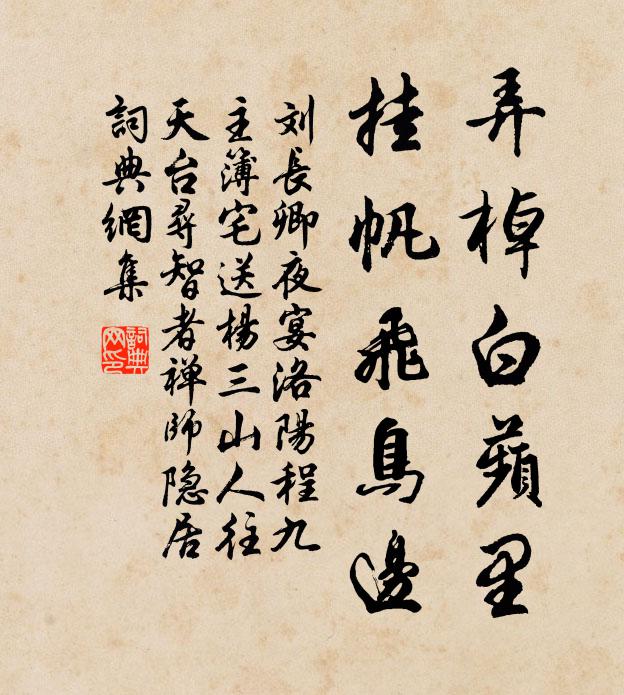 弄棹白蘋里
挂帆飛鳥邊
刘長卿夜宴洛陽程九
主簿宅送楊三山人往
天台尋智者禅師隐居
詞典網集
詞典网印